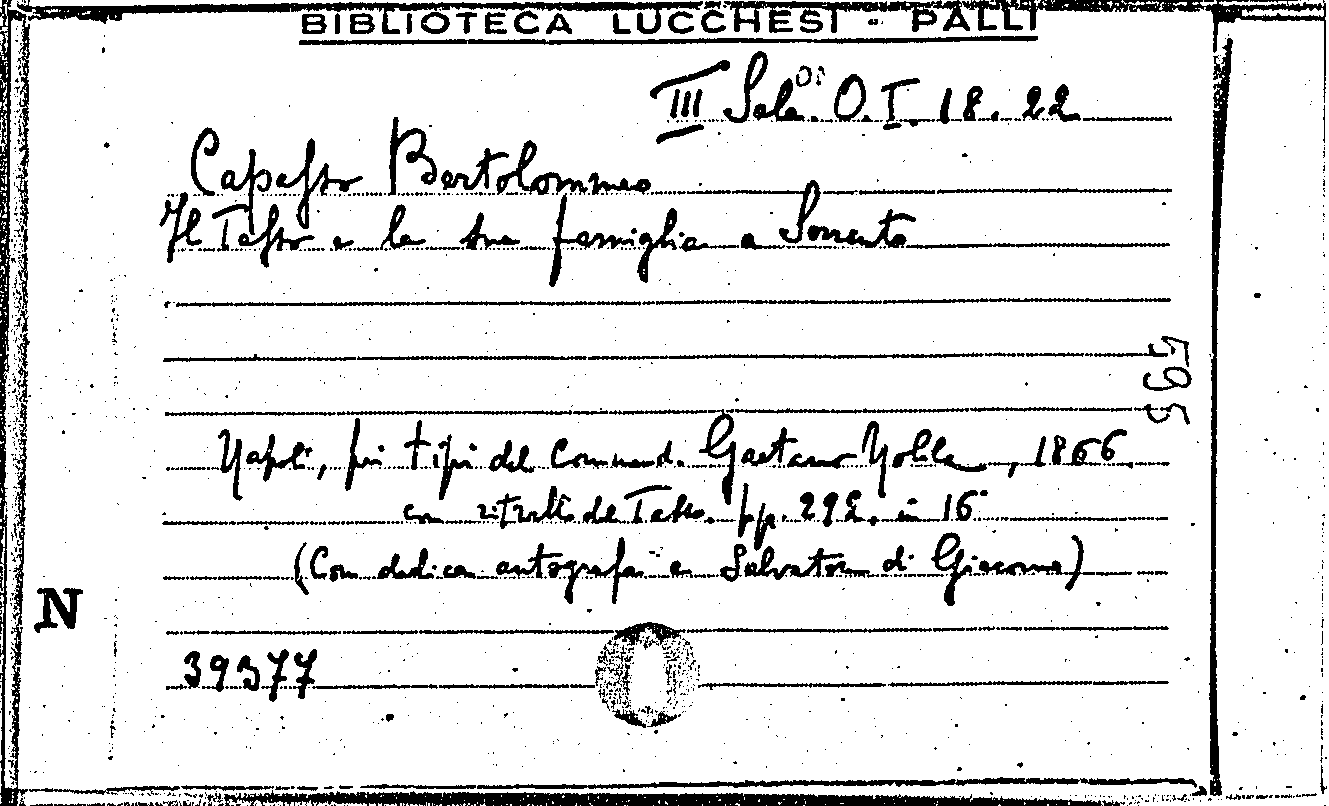 BIBLIOTECA LUCCHESI - PALLI
III Sala. O. I. 18. 22
Capasso Bartolommeo
Il Tasso e la sua famiglia a Sorrento
595
Napoli, pei tipi del Commend. Gaetano Nobile, 1866
con ritratto del Tasso. pp. 292. in 16°
(Con dedica autografa a Salvatore di Giacomo)
N
39377